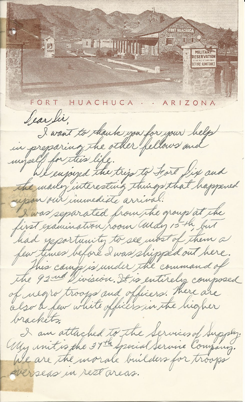 FORT HUACHUCA
MILITARY
RESERVATION
FORT HUACHUCA - - ARIZONA
Dear Sir,
I want to thank you for your help
in preparing the other fellows and
myself for this life.
We enjoyed the trip to Fort Dix and
the many interesting things that happened
upon our immediate arrival.
I was separated from the group at the
first examination room Wedy 15th, but
had opportunity to see most of them a
few times before I was shipped out here.
This camp is under the command of
the 92nd Division. It is entirely composed
of negro troops and officers. There are
also a few white officers in the higher
brackets.
I am attached to the Services of Supply.
My unit is the 37th Special Service Company.
We are the morale builders for troops
overseas in rest areas.